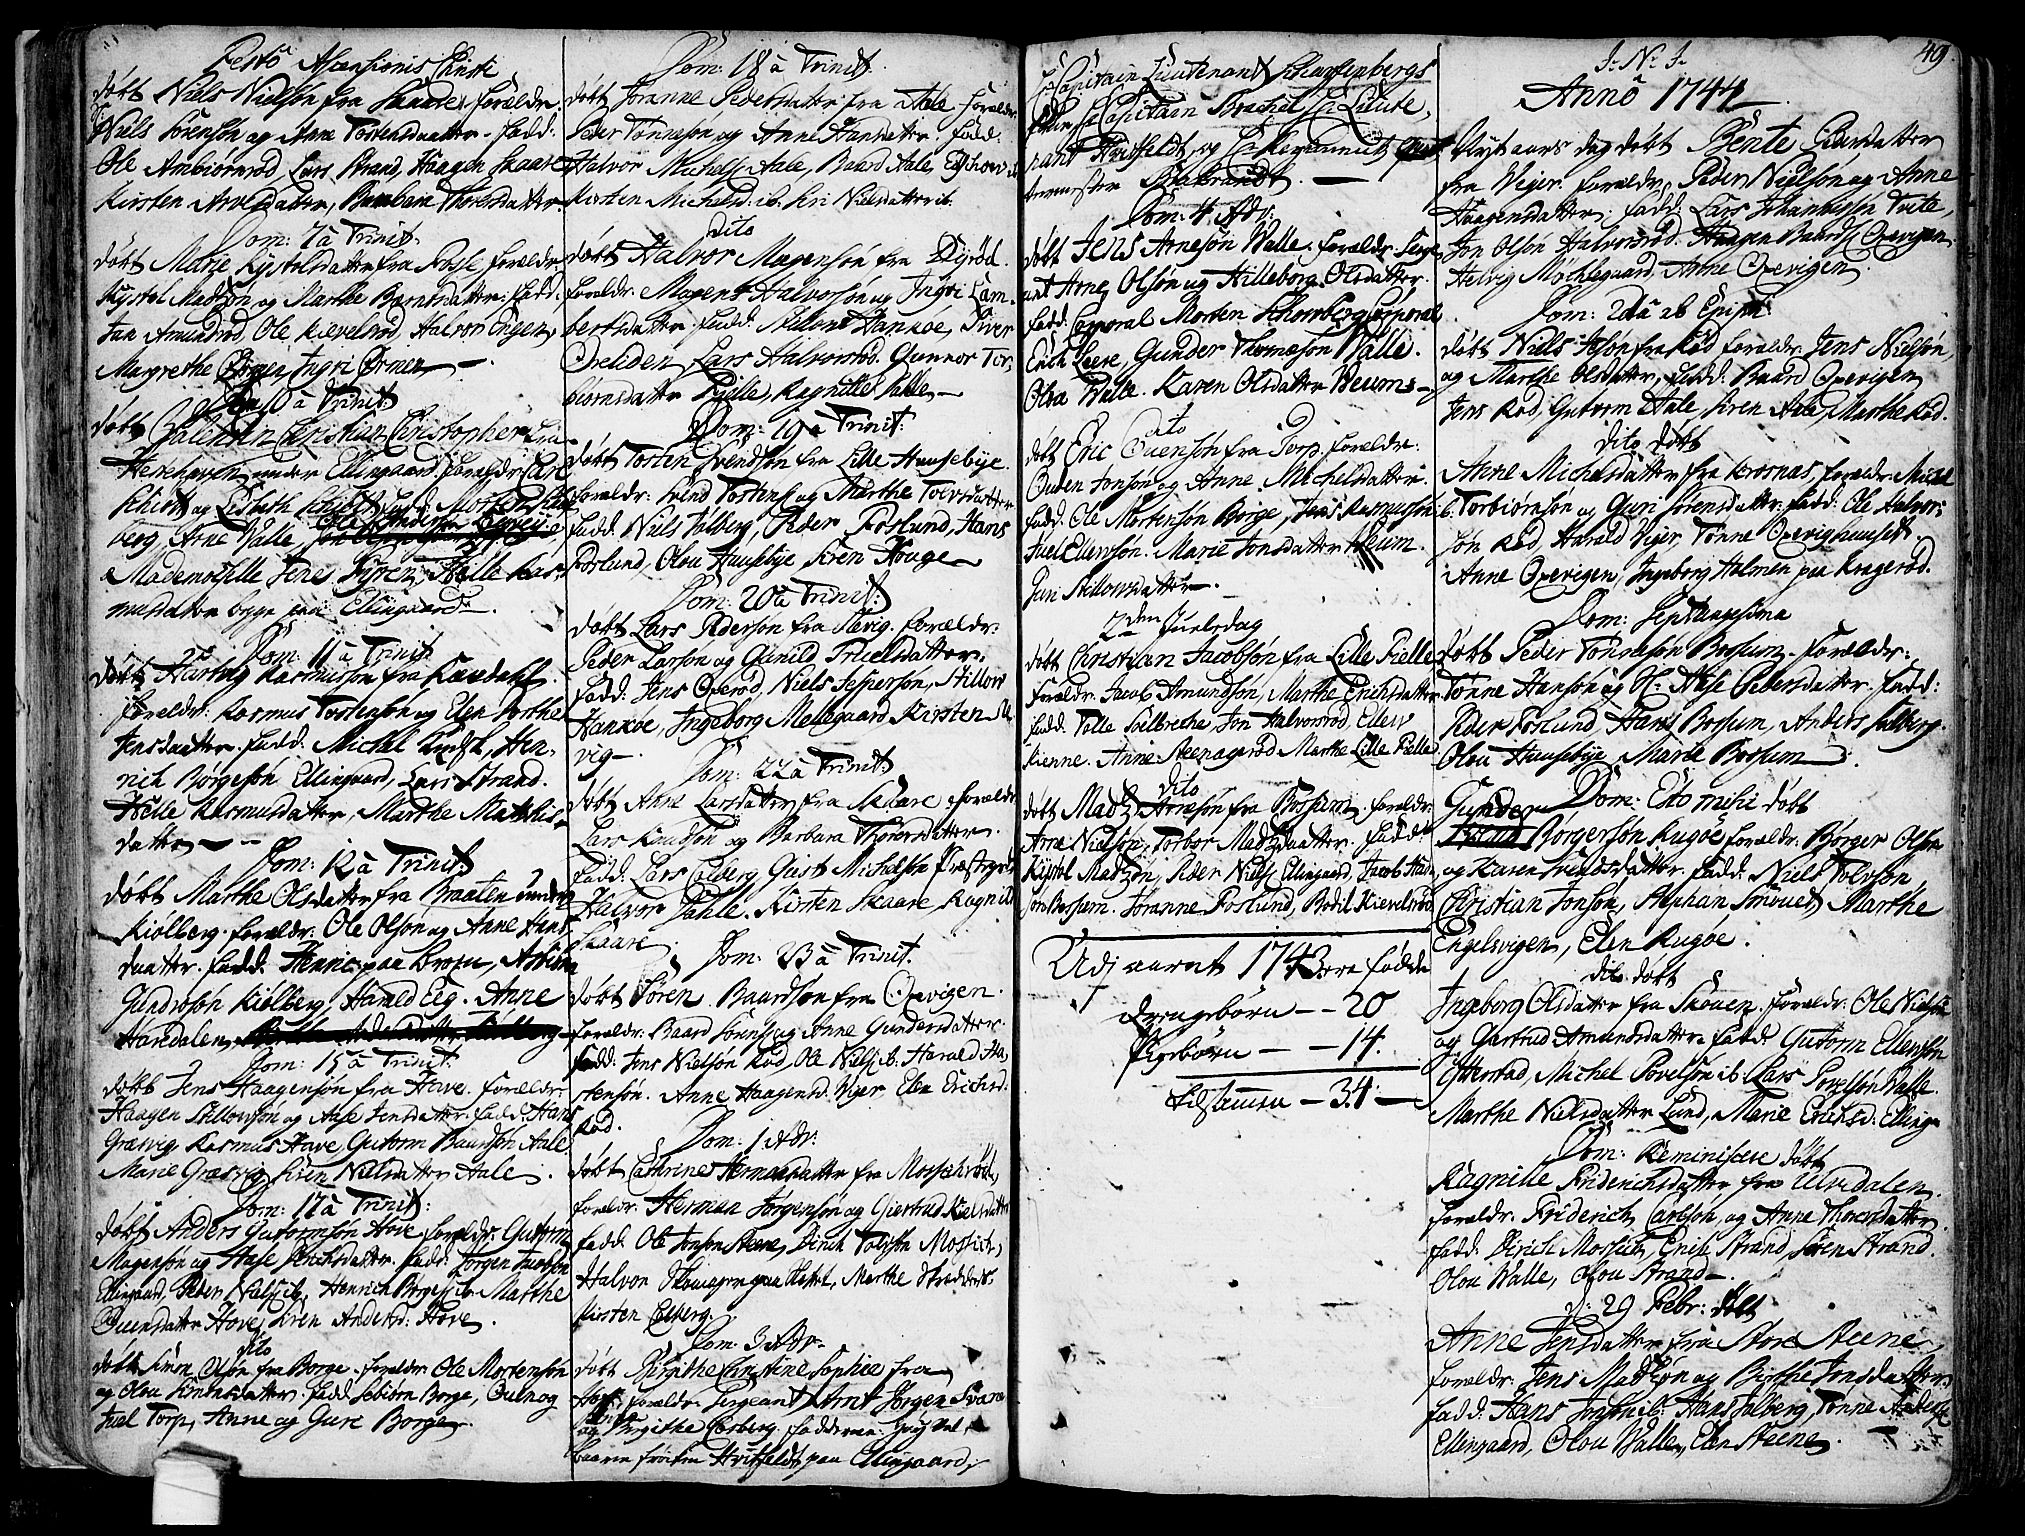 Festo Ascensionis Christi
døbt Niels Nielsøn fra Skaare, forældr:
Niels Sørensøn og Anne Torstensdaatter. fadd:
Ole Ambiørnrød, Lars Strand, Haagen Skaare
Kirsten Arvesdatter, Barbara Thoresdatter.
Dom: 7 à Trinit:
døbt Marie Kystolsdatter fra Fosse forældr:
Kystol Madzøn og Marthe Berntsdatter. fadd:
Jan Amundrød, Ole Kievelsrød, Halvor Engen,
Margrethe Ormen, Ingri Ormen
Dom: 10 à Trinit:
døbt Valentin Christian Christopher fra
under Ellingaard, forældr: Carl
Schiøtt og Lisbeth fadd: Morten
berg, Arne Walle, Ole Andersøn
Mademoiselle Jens Helle Ras-
musdatter begge paa Ellingaard.
Dom: 11 à Trinit:
døbt Hartvig Rasmussøn fra Kaardahl.
forældr: Rasmus Torstensøn og Elen Dorthe
Jensdaatter. fadd: Michel Knudsf. Hen-
rich Børgesøn Ellingaard, Lars Strand.
Helle Rasmusdatter, Marthe Mathis-
datter
Dom: 12 à Trinit:
døbt Marthe Olsdatter fra Braaten under
Kiølberg. forældr: Ole Olsøn og Anne Hans
daatter. fadd: Henric paa Broen,
Gundersøn Kiølberg, Harald Eeg. Anne
Harsdalen
Dom: 15 à Trinit:
døbt Jens Haagensøn fra Hove. forældr:
Haagen Stillowsøn og Aase Jensdatter. fadd: Hans
Græsvig, Rasmus Hove, Gutorm Baardsøn Aale
Marie Græsvig, Siren Nielsdatter Aale.
Dom: 17 à Trinit:
døbt Anders Gutormsøn Hove, forældr: Gutorm
Mogensøn og Aase Henrichsdatter. fadd: Jørgen Jacobsøn
Ellingaard, Peder Nielsf. ib. Henrich Børgesf. ib. Marthe
Ouensdatter Hove, Siren Andersd: Hove.
dito
døbt Simon Olsøn fra Borge. forældr: Ole Mortensøn
og Olou Simensdatter. fadd: Sebiørn Borge, Ouen og
Juel Torp, Anne og Gure Borge.
Dom: 18 à Trinit:
døbt Joranne Pedersdatter fra Aale forældr:
Peder Tønnesøn og Anne Hansdatter. fadd:
Halvor Michelsf. Aale, Baard Aale,
Kirsten Michelsd: ib. Siri Nielsdatter ib.
dito
døbt Halvor Mogensøn fra Dyrød.
forældr: Mogens Halvorsøn og Ingri Lam-
bertsdatter. fadd: Stillou Hankøe, Siver
Oreliden, Lars Halvorsrød. Gunnor Tor-
biørnsdatter Pielle, Ragnille Walle
Dom: 19 à Trinit:
døbt Torsten Svendsøn fra Lille Huusebye.
forældr: Svend Torstens: og Marthe Tolvsdatter
fadd: Niels Solberg, Peder Foslund, Hans
Foslund, Olou Huusebye, Siren Houge
Dom: 20 à Trinit:
døbt Lars Pedersøn fra Slevig. forældr:
Peder Larsøn og Gunild Truelsdatter.
fadd: Jens Oxerød, Niels Jespersøn, Stillow
Hankøe, Ingeborg Mellegaard, Kirsten Sle-
vig
Dom: 22 à Trinit:
døbt Anne Larsdatter fra Skaare forældr:
Lars Knudsøn og Barbara Thoresdatter.
fadd: Lars Colberg, Guist Michelsøn
Halvor Dahle. Kirsten Skaare, Ragnild
Skaare.
Dom: 23 à Trinit.
døbt Sören Baardsøn fra Oxevigen.
forældr: Baard Sörens: og Anne Gundersdatter.
fadd: Jens Nielsøn Rød, Ole Nielsf. ib. Harald Ha-
stensøn. Anne Haagensd. Viger, Elen Erichsd:
Rød.
Dom: 1 Adv:
døbt Cathrine Hermansdatter fra Mossikrød,
forældr: Herman Jørgensøn og Giertrud Nielsdatter
fadd. Ole Jonsøn Steene, Dirich Tolvsøn Mossich,
Halvor Skomager paa Hattet, Marthe Skredders.
Kirsten Colberg.
Dom: 3 Adv:
døbt Birgithe Christine Sophie fra
forældr: Sergeant Arnt Jørgen Svane
og Birgithe Colberg. fadderne: Høy Vel
baarne frøiken Hvitfeldt paa Ellingaard,
Capitain Lieutenant Scharffenbergs
Capitain Brachel, Hr: Lieute-
nant Hvitfeldt, og Hr: Regiments
Dom: 4 Adv:
døbt Jens Arnesøn Walle. forældr: Serge
ant Arne Olsøn og Hilleborg Olsdatter.
fadd: Corporal Morten Schomberg, Corporal
Erich Leere, Gunder Thomesøn Walle.
Olou Walle. Karen Olsdatter Veum
dito
døbt Eric Ouensøn fra Torp. forældr:
Ouden Jonsøn og Anne Michelsdatter.
fadd: Ole Mortensøn Borge, Jens Rasmussøn ib.
Juel Ellensøn. Marie Jonsdatter Veum.
Guri Stillowsdatter
2den Juelsdag
døbt Christian Jacobsøn fra Lille Pielle
forældr: Jacob Amundsøn, Marthe Erichsdatter
fadd: Tolle Sælbrethe, Jon Halvorsrød, Ellev
Kienne. Anne Steenagerød, Marthe Lille Pielle.
dito
døbt Madz Arnesøn fra Bossum. forældr:
Arne Nielsøn, Torbor Madzdaatter. fadd:
Kystol Madzøn, Peder Nielsf. Ellingaard, Jacob Han-
søn Bossum. Joranne Foslund, Bodil Kievelsrød.
Udj aaret 1743 ere fødde
drengebørn -- 20
Pigebørn -- 14.
tilsammen - 34.
49.
I. N. J.
Anno 1744
Nytaars dag døbt Bente Pedersdatter
fra Vejer. forældr: Peder Nielsøn og Anne
Haagensdatter: fadd: Lars Johannesøn Tvete,
Jon Olsøn Halvorsrød. Haagen Baardsf. Oxevigen
Helvig Mychlegaard, Anne Oxevigen.
Dom: 2da ab Epiph:
døbt Niels Jensøn fra Rød forældr: Jens Nielsøn,
og Marthe Olsdatter, fadd: Baard Oxevigen
Jens Rød, Gutorm Aale, Siren Aale, Marthe Rød.
dito døbt
Anne Michelsdatter fra Roornas, forældr: Michel
Torbiørnsøn og Guri Sörensdatter. fadd: Ole Halvor-
søn Rød, Harald Vejer, Tønne Oxevighauset.
Anne Oxevigen, Ingeborg Holmen paa Kragerød.
Dom: Septuagesima
døbt Peder Tønnesøn Bossum. forældr:
Tønne Hansøn og Else Pedersdatter. fadd:
Peder Foslund, Hans Bossum, Anders Solberg.
Olou Huusebye, Marie Bossum.
Dom: Esto mihi døbt
Gunder
Børgersøn Rugøe, forældr: Børger Olsøn
og Karen Svendsdatter. fadd: Niels Tolvsøn,
Christian Jonsøn, Stephan Marthe
Engelsvigen, Elen Rugøe.
dito døbt
Ingeborg Olsdatter fra Skoven. forældr: Ole Nielsøn
og Giertrud Amundsdatter. fadd: Gutorm Ellensøn
Ytterstad, Michel Povelsøn ib: Lars Povelsøn Walle.
Marthe Nielsdatter Lund, Marie Erichsd: Elling-
Dom: Reminiscere døbt
Ragnille Friderichsdatter fra Elvedalen.
forældr: Friderich Carlsøn, og Anne Thoresdatter,
fadd: Dirich Mossich, Erich Strand, Sören Strand.
Olou Walle, Olou Strand
d: 29 Febr: døbt
Anne Jensdatter fra Store Steene,
forældr: Jens Madzøn og Birthe Jonsdatter
fadd: Hans Jonsøn ib. Hans Solberg, Tønne Andersf.
Ellingaard, Olou Walle, Elen Steene.